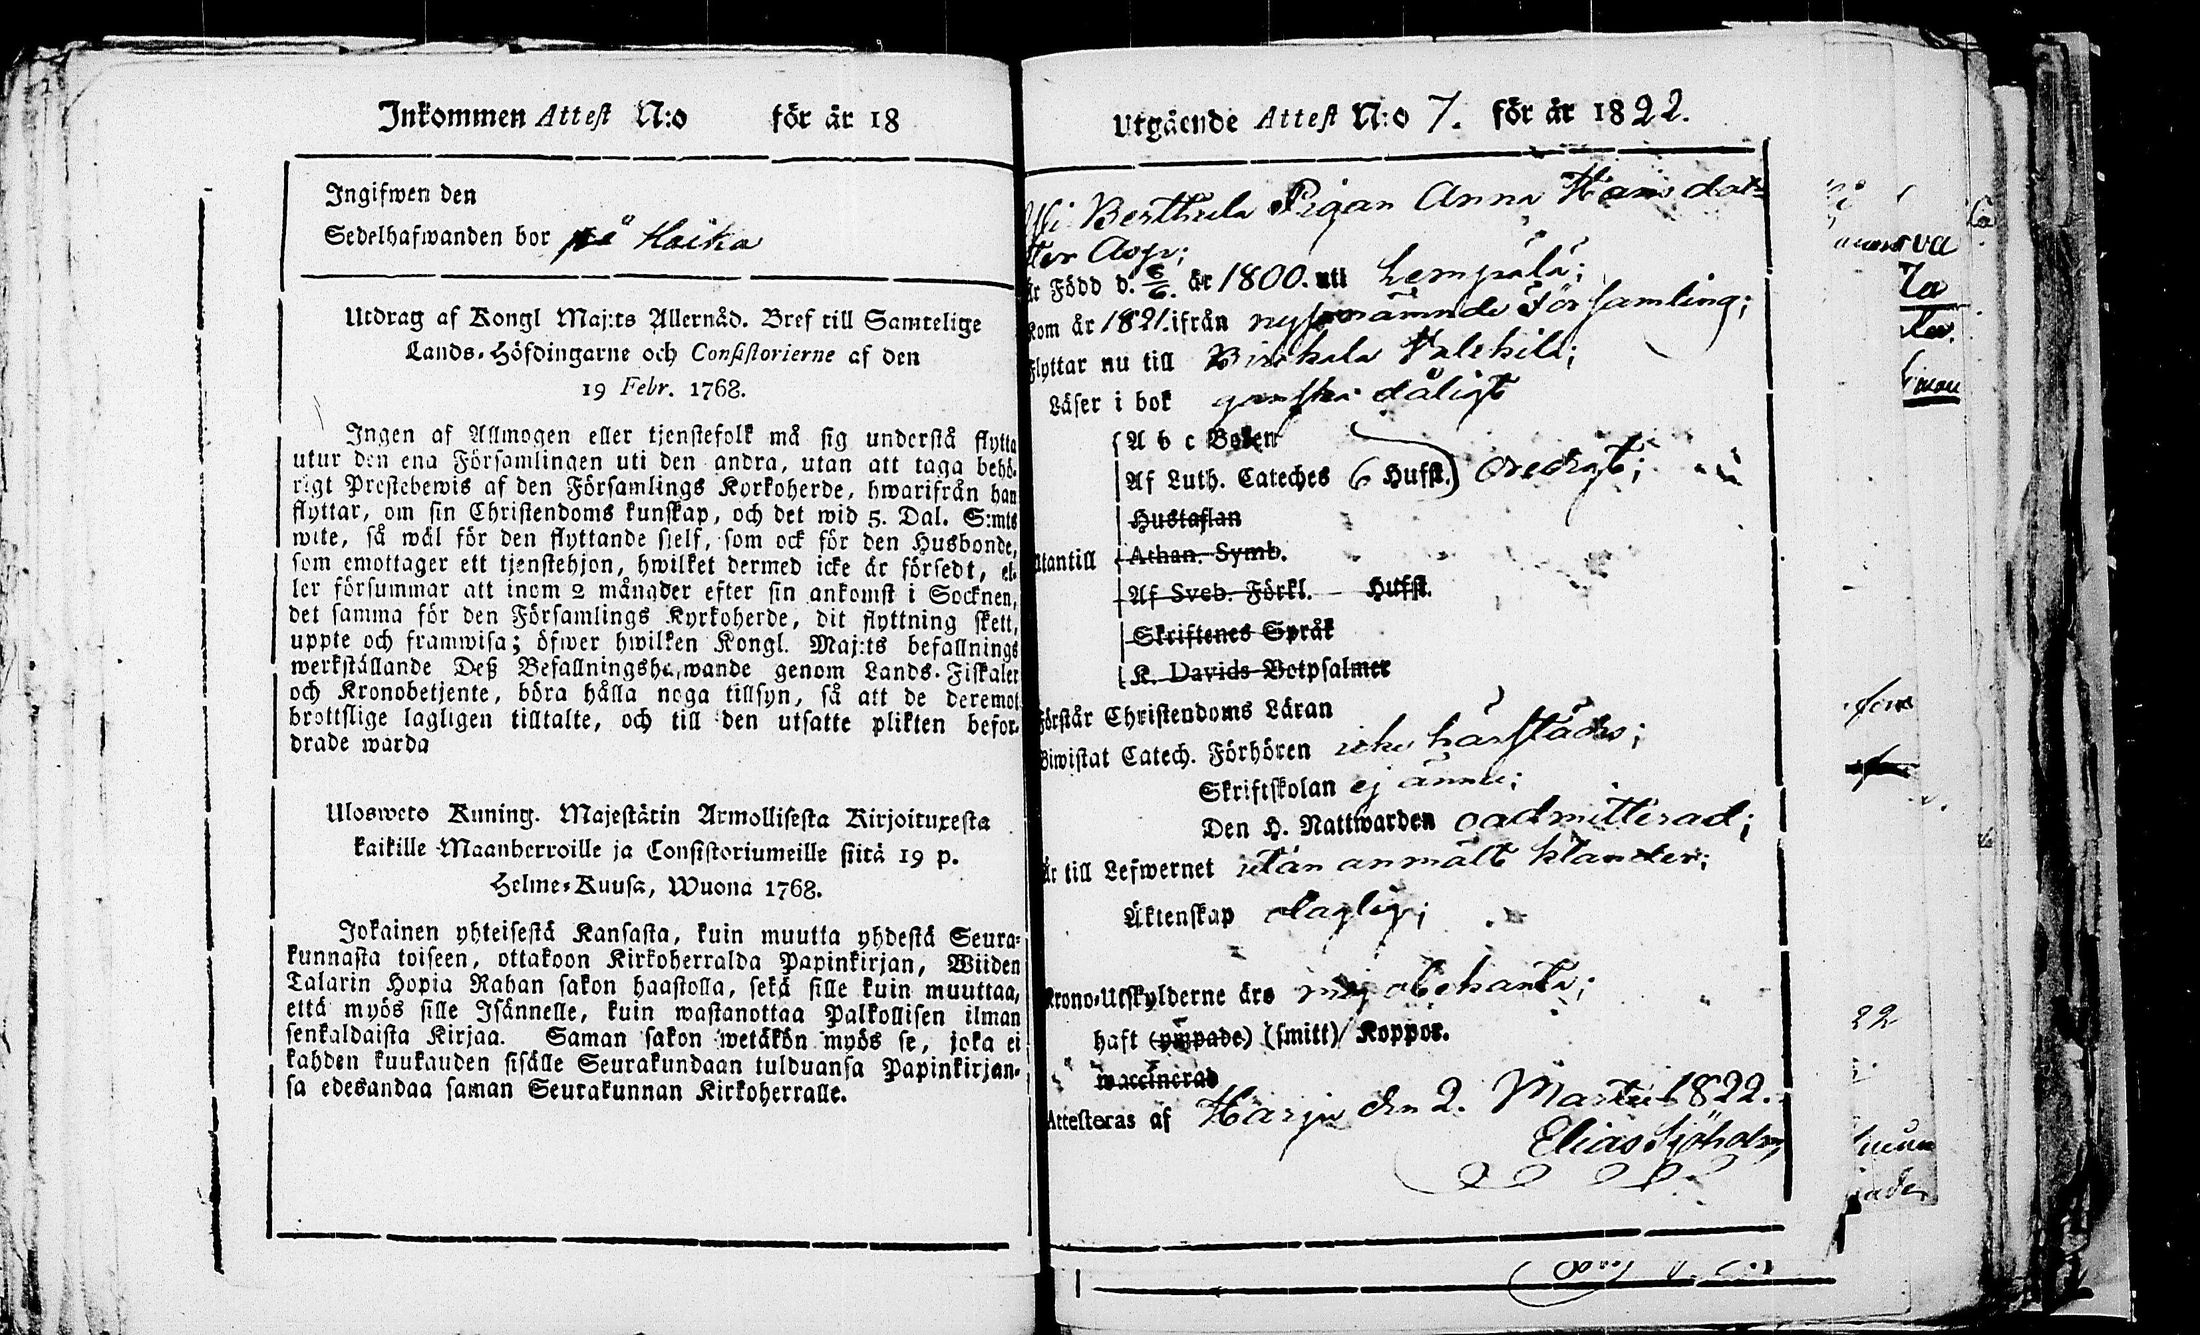 Inkommen Attest N:o för år 18
Ingifwen den
Sedelhafwanden bor på Haika
Utdrag af Kongl Maj:ts Allernåd. Bref till Samtelige
Lands-Höfdingarne och Consistorierne af den
19 Febr. 1768.
Ingen af Allmogen eller tjenstefolk må sig understå flytta
utur den ena Församlingen uti den andra, utan att taga behö-
rigt Prestebewis af den Församlings Kyrkoherde, hwarifrån han
flyttar, om sin Christendoms kunskap, och det wid 5. Dal. S:mts
wite, så wäl för den flyttande sjelf, som ock för den Husbonde,
som emottager ett tjenstehjon, hwilket dermed icke är försedt, el-
ler försummar att inom 2 månader efter sin ankomst i Socknen,
det samma för den Församlings Kyrkoherde, dit flyttning skett,
uppte och framwisa; öfwer hwilken Kongl. Maj:ts befallnings
werkställande Deß Befallningshafwande genom Lands-Fiskaler
och Kronobetjente, böra hålla noga tillsyn, så att de deremot
brottslige lagligen tilltalte, och till den utsatte plikten befor-
drade warda
Ulosweto Kuning. Majestätin Armollisesta Kirjoituxesta
kaikille Maanherroille ja Consistoriumeille siitä 19 p.
Helme-Kuusa, Wuona 1768.
Jokainen yhteisestä Kansasta, kuin muutta yhdestä Seura-
kunnasta toiseen, ottakoon Kirkoherralda Papinkirjan, Wiiden
Talarin Hopia Rahan sakon haastolla, sekä sille kuin muuttaa,
että myös sille Isännelle, kuin wastanottaa Palkollisen ilman
senkaldaista Kirjaa. Saman sakon wetäkön myös se, joka ei
kahden kuukauden sisälle Seurakundaan tulduansa Papinkirjan-
sa edesandaa saman Seurakunnan Kirkoherralle.
Utgående Attest N:o 7. för år 1822.
Berthula Pigan Anna Hans dot-
ter Asp;
är Född d. 6/6. år 1800. uti Lempälä;
kom år 1821. ifrån nyssnämnde Församling;
flyttar nu till Birkala
Läser i bok ganska dåligt
A b c Boken
Af Luth. Cateches (6 Hufst.) oredigt;
Hustaflan
Utantill Athan. Symb.
Af Sveb. Förkl. Hufst.
Skriftenes Språk
K. Davids Botpsalmer
Förstår Christendoms Läran
Biwistat Catech. Förhören icke härstädes;
Skriftskolan ej ännu;
Den H. Nattwarden oadmitterad;
Är till Lefwernet utan anmält klander;
Äktenskap laglig;
Krono-Utskylderne äro mig obekanta;
haft (ympade) (smitt) Koppor.
waccinerad
Attesteras af Harju den 2. Martii 1822.
Elias Sjöholm